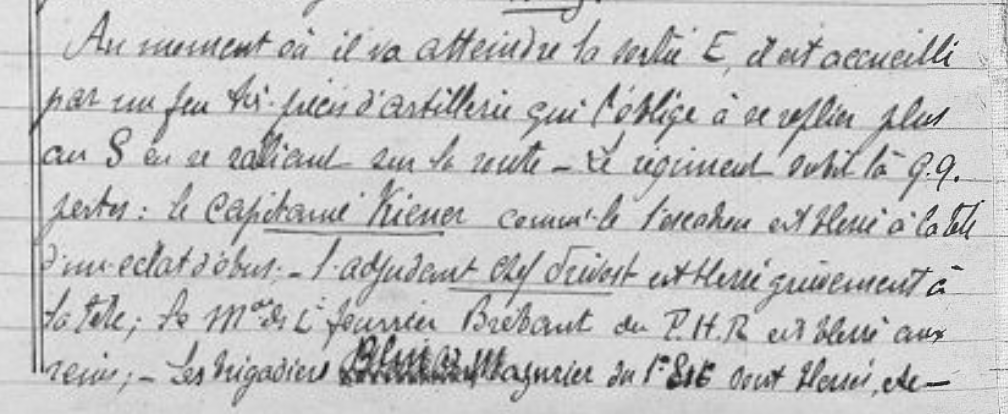 Au moment où il va atteindre la sortie E, il est accueilli
par un feu très précis d'artillerie qui l'oblige à se replier plus
au S en se ralliant sur la route - Le régiment subit là q.q.
pertes : le Capitaine Kiener comm<sup>t</sup> le 1<sup>er</sup> escadron est blessé à la tête
d'un éclat d'obus. - l'adjudant chef est blessé grièvement à
la tête ; le M<sup>al</sup> des L<sup>is</sup> fourrier Brébant du P.H.R est blessé aux
reins ; - Les brigadiers Magnier du 1<sup>er</sup> sont blessés, etc -